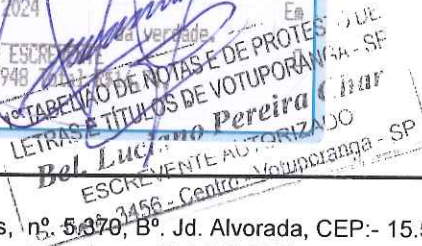 2024
Em
da verdade.
ESCREVENTE
948
1º TABELIÃO DE NOTAS E DE PROTESTO DE
LETRAS E TÍTULOS DE VOTUPORANGA - SP
Bel. Luciano Pereira Char
ESCREVENTE AUTORIZADO
3456 - Centro - Votuporanga - SP
s, nº. 5.370, Bº. Jd. Alvorada, CEP:- 15.5